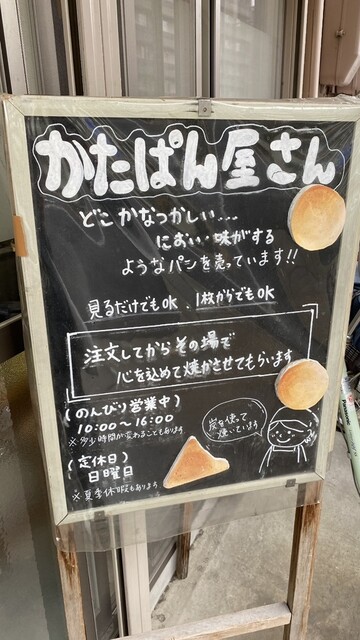 かたぱん屋さん
どこかなつかしい...
におい・味がする
ようなパンを売っています!!
見るだけでもOK、1枚からでもOK
注文してからその場で
心を込めて焼かさせてもらいます
(のんびり営業中)
10:00〜16:00
※多少時間が変わることもあります
(定休日)
日曜日
※夏季休暇もあります
炭を使って
焼いています